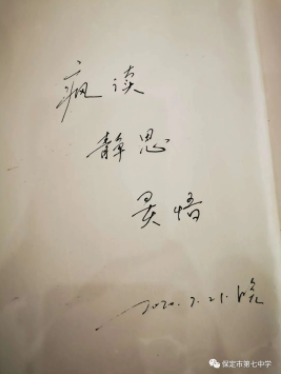 疯读
静思
灵悟
2020.7.21.晚
保定市第七中学